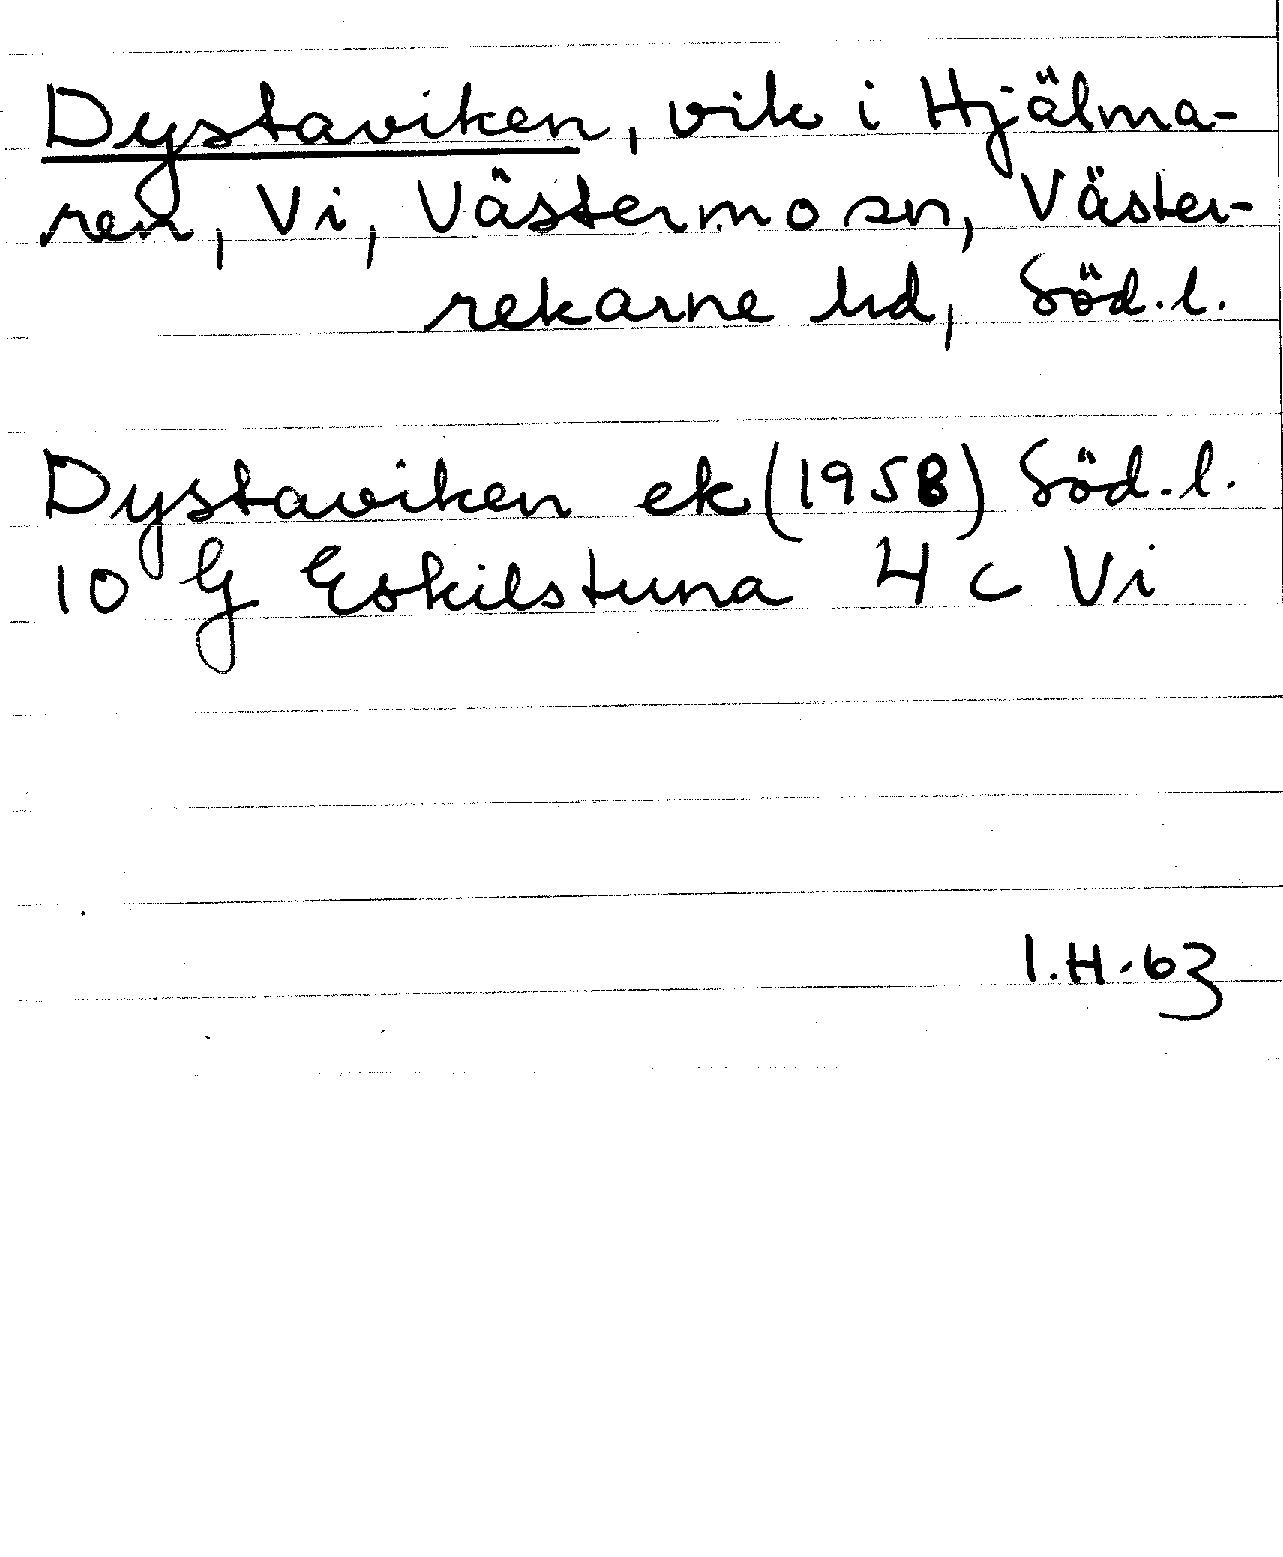 Dystaviken, vik i Hjälma-
ren, Vi, Västermo sn, Väster-
rekarne hd, Söd. l.
Dystaviken ek (1958) Söd. l.
10 G Eskilstuna 4 c Vi
I.H. 63